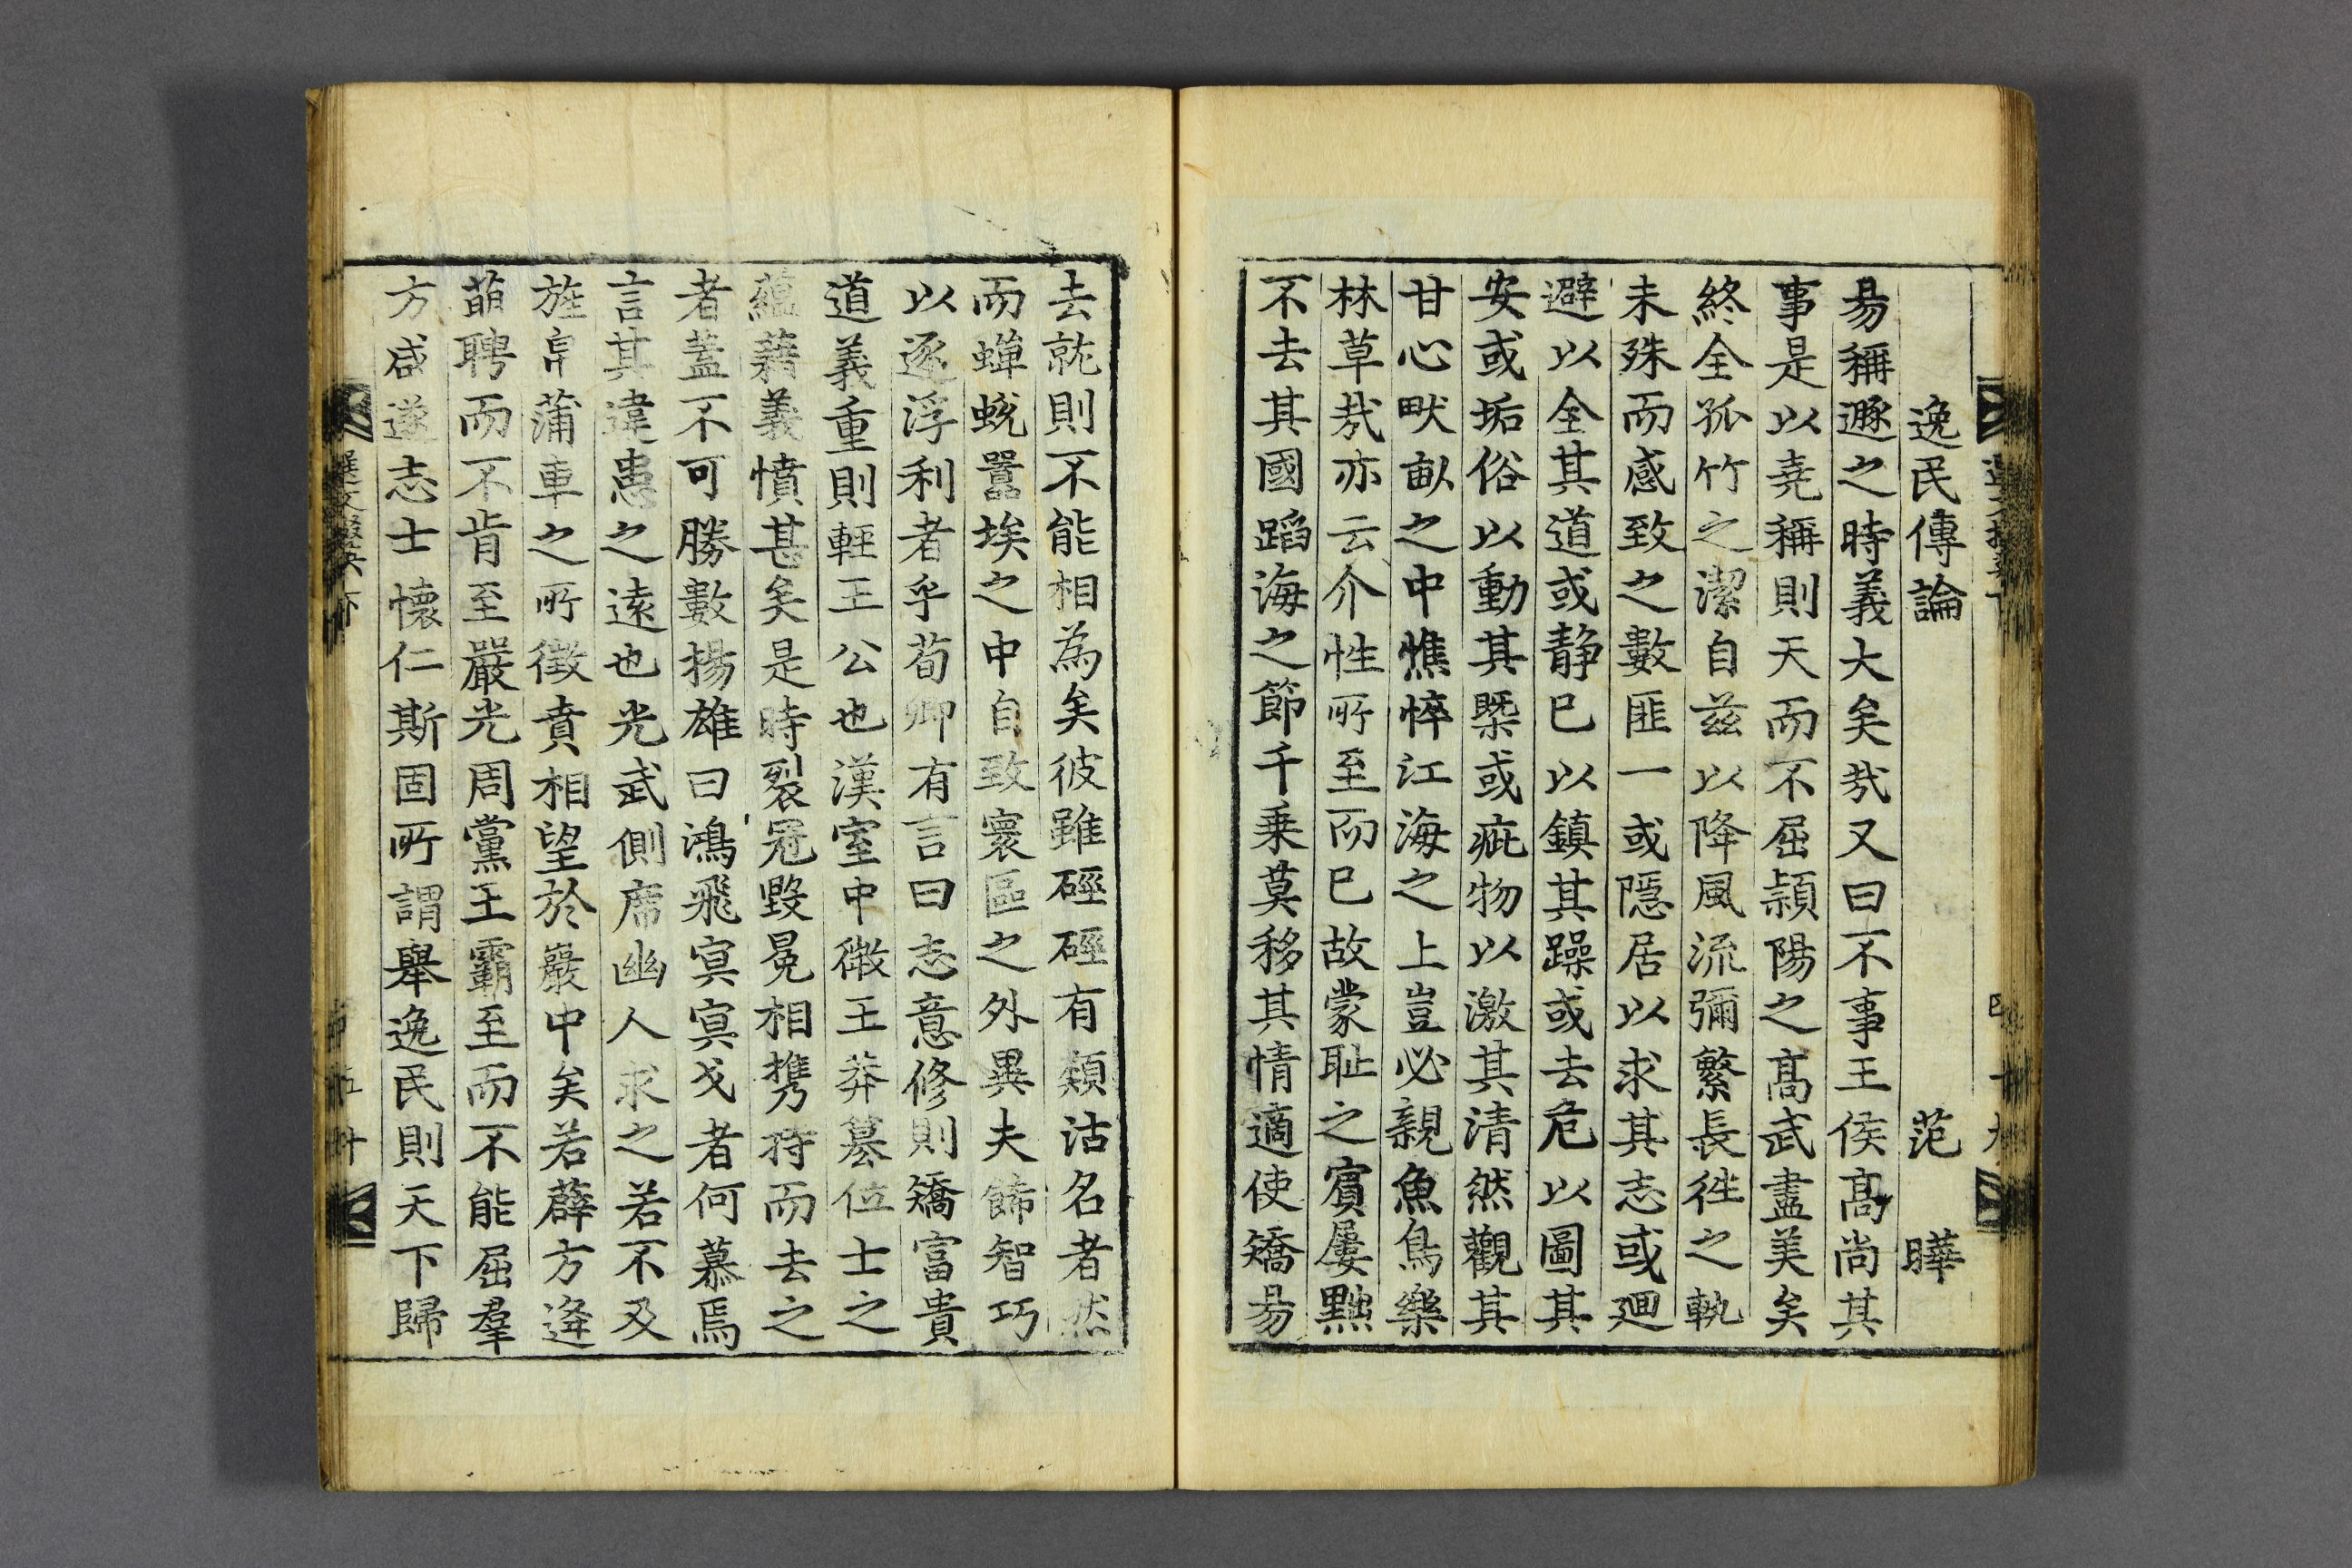 逸民傳論 范曄
易稱遯之時義大矣㢤又曰不事王侯髙尚其
事是以堯稱則天而不屈潁陽之髙武盡美矣
終全孤竹之潔自兹以降風流彌繁長徃之軌
未殊而感致之數匪一或隱居以求其志或廻
避以全其道或静已以鎮其躁或去危以圖其
安或垢俗以動其槩或疵物以激其清然觀其
甘心畎畝之中憔悴江海之上豈必親魚鳥樂
林草㢤亦云介性所至而已故蒙耻之賔屢黜
不去其國蹈海之節千乗莫移其情適使矯易
去就則不能相為矣彼雖硜硜有類沽名者然
而蟬蛻嚣埃之中自致寰區之外異夫飾智巧
以逐浮利者乎荀卿有言曰志意修則矯富貴
道義重則輕王公也漢室中微王莽簒位士之
蘊藉義憤甚矣是時裂冠毀冕相携持而去之
者蓋不可勝數揚雄曰鴻飛㝠㝠弋者何慕焉
言其違患之逺也光武側席幽人求之若不及
旌帛蒲車之所徵賁相望於巖中矣若薛方逄
萌聘而不肯至嚴光周黨王霸至而不能屈羣
方咸遂志士懷仁斯固所謂舉逸民則天下歸
選文掇英下